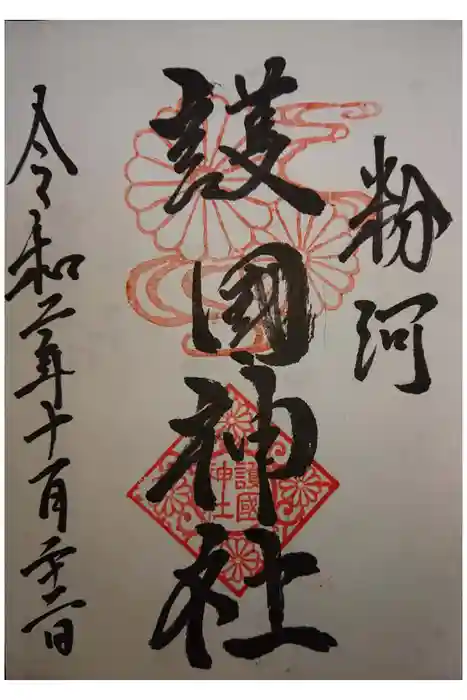 粉河
護國神社
令和二年十一月二十二日
護國
神社